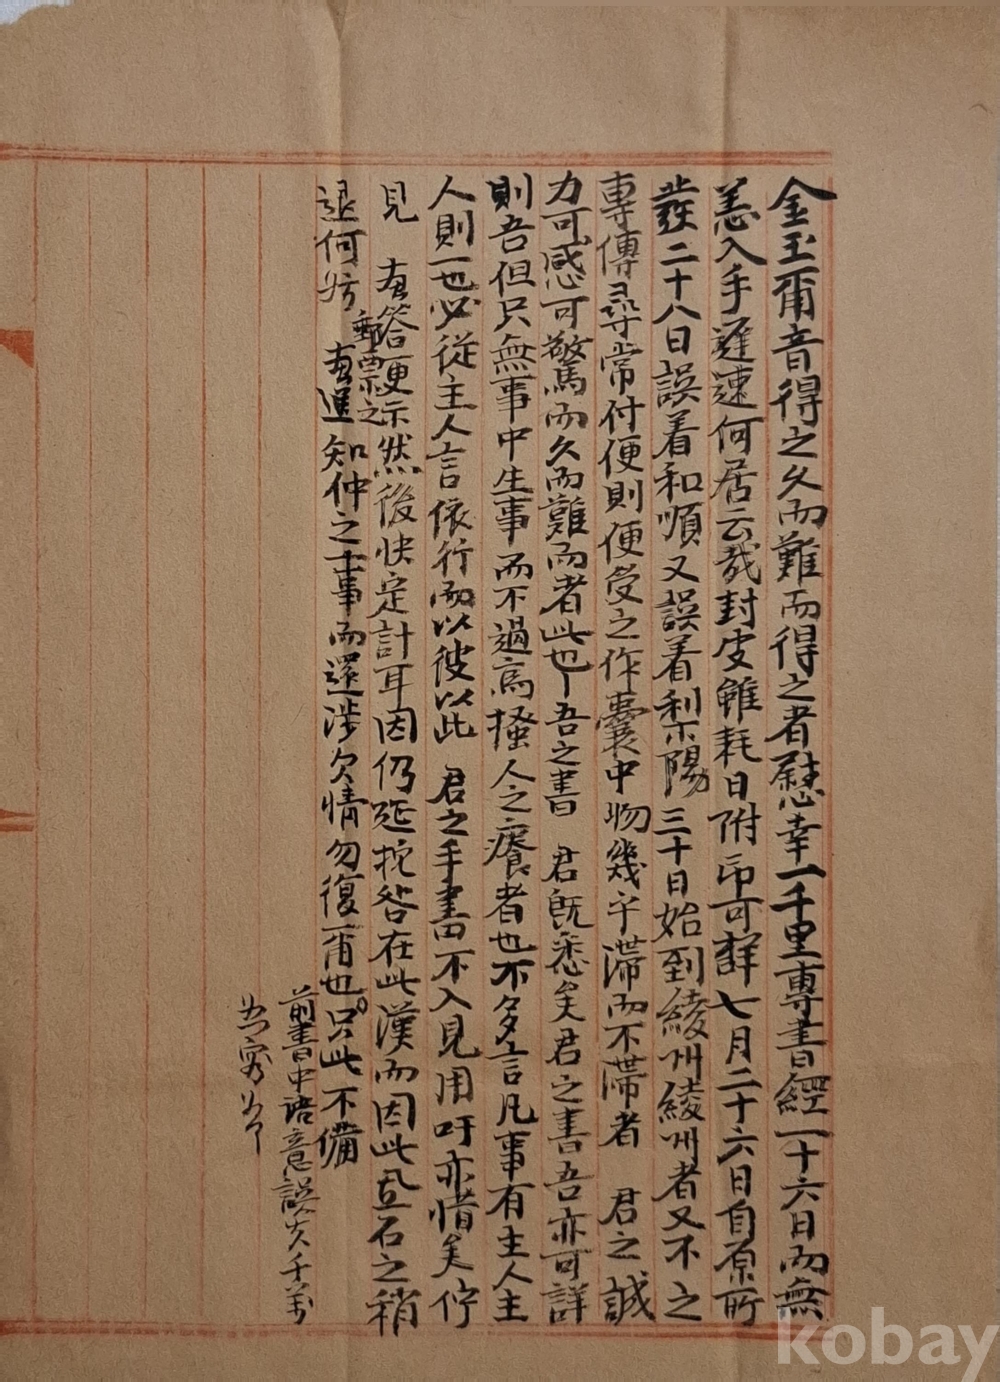 金玉爾音得之久而難而得之者慰幸一千里專書經一十六日而無
恙入手遲速何居云哉封皮雖耗日附印可詳七月二十六日自原所
發二十八日誤着和順又誤着利陽三十日始到綾州綾州者又不之
專傳尋常付便則便受之作囊中物幾乎滯而不滯者 君之誠
力可感可驚而久而難而者此也吾之書 君旣悉矣君之書吾亦可詳
則吾但只無事中生事而不過爲搔人之癢者也不多言凡事有主人主
人則一也必從主人言依行而以彼以此 君之手書田不入見用吁亦惜矣佇
見 有答更示然後快定計耳因仍延拕咎在此漢而因此且石之稍
郵票之
退何妨 有進知仲之士事而還涉欠情勿復爾也只此不備
前書中語意誤失千萬